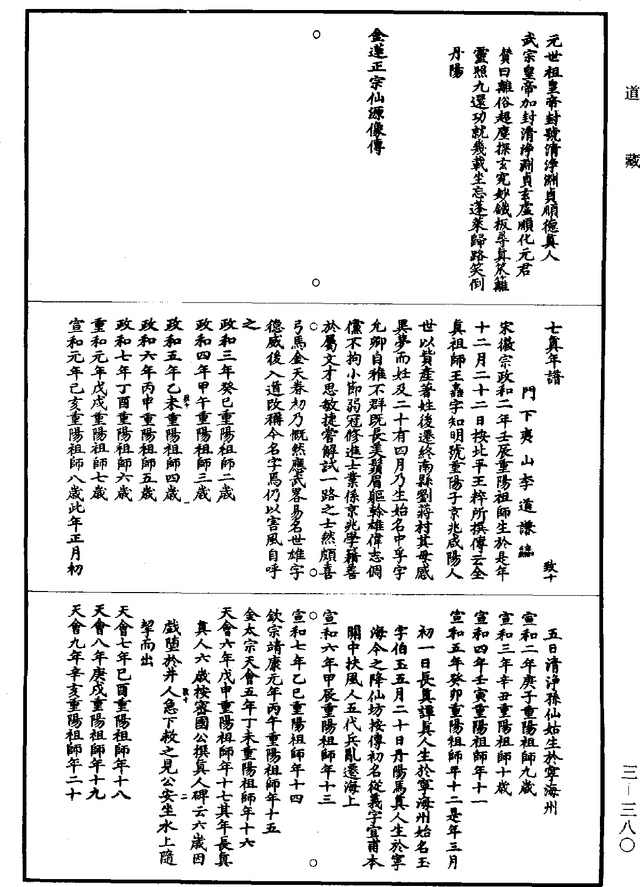 道藏
元世祖皇帝封號清淨淵貞順德真人
武宗皇帝加封清淨淵貞玄虛順化元君
贊曰離俗超塵探玄究妙鐵板尋真笊籬
靈照九還功就幾載坐忘蓬萊歸路笑倒
丹陽
金蓮正宗仙源像傳
七真年譜
門下夷山李道謙編
致十
宋徽宗政和二年壬辰重陽祖師生於是年
十二月二十二日按北平王粹所撰傳云全
真祖師王嚞字知明號重陽子京兆咸陽人
世以貲產著姓後遷終南縣劉蔣村其母感
異夢而娠及二十有四月乃生始名中孚字
允卿自稚不群既長美鬚眉軀幹雄偉志倜
儻不拘小節弱冠修進士業係京兆學籍善
於屬文才思敏捷嘗解試一路之士然頗喜
弓馬金天眷初乃慨然應武畧易名世雄字
德威後入道改稱今名字焉仍以害風自呼
之
政和三年癸巳重陽祖師二歲
政和四年甲午重陽祖師三歲
政和五年乙未重陽祖師四歲
政和六年丙申重陽祖師五歲
政和七年丁酉重陽祖師六歲
重和元年戊戌重陽祖師七歲
宣和元年己亥重陽祖師八歲此年正月初
五日清淨孫仙姑生於寧海州
宣和二年庚子重陽祖師九歲
宣和三年辛丑重陽祖師十歲
宣和四年壬寅重陽祖師年十一
宣和五年癸卯重陽祖師年十二是年三月
初一日長真譚真人生於寧海州始名玉
字伯玉五月二十日丹陽馬真人生於寧
海今之降仙坊按傳初名從義字宜甫本
關中扶風人五代兵亂遷海上
宣和六年甲辰重陽祖師年十三
宣和七年乙巳重陽祖師年十四
欽宗靖康元年丙午重陽祖師年十五
金太宗天會五年丁未重陽祖師年十六
天會六年戊申重陽祖師年十七其年長真
真人六歲按密國公撰真人碑云六歲因
戲墮於井人急下救之見公安坐水上隨
挈而出
天會七年己酉重陽祖師年十八
天會八年庚戌重陽祖師年十九
天會九年辛亥重陽祖師年二十
三—三八〇